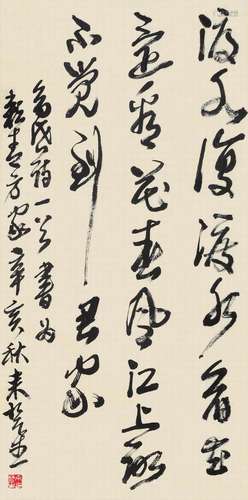 渡水復渡水看花
還看花春風江上路
不覺到君家
詩一首書為
青方家辛亥秋来楚生